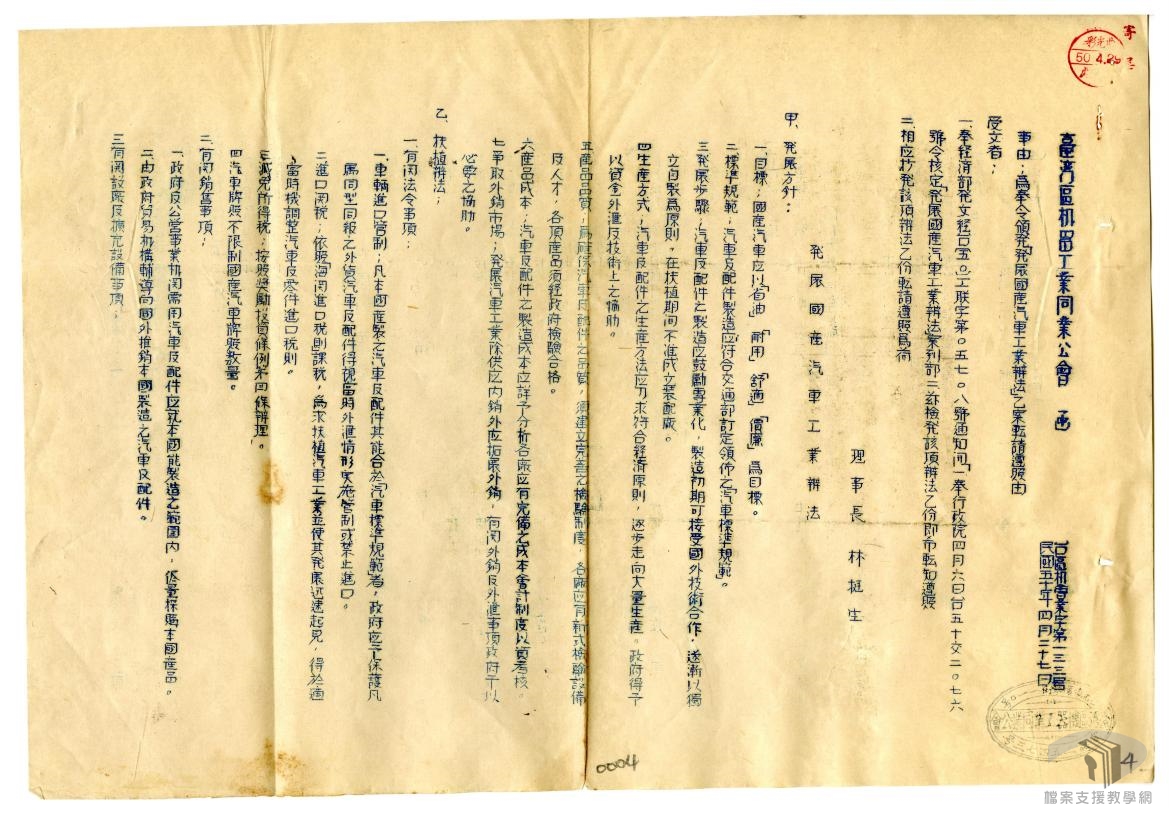 臺灣區机器工業同業公會 函
台區机普業字第一三三號
民國五十年四月二十七日
受文者：
事由：為奉令頒発「発展國産汽車工業辨法」乙案転請遵照由
一、奉經済部発文経台(五〇)工联字第〇五七〇八號通知開「一奉行政院四月六日台五十交二〇七六
號令核定「発展國産汽車工業辨法」案到部二茲檢発該項辨法乙份即希転知遵照
二、相应抄発該項辨法乙份転請遵照為荷
理事長 林挺生
発展國産汽車工業辨法
甲、発展方針：
一、目標；國産汽車应以「省油」「耐用」「舒適」「價廉」為目標。
二、標準規範；汽車及配件製造应符合交通部訂定領佈之「汽車標準規範」。
三、発展步驟；汽車及配件之製造应鼓勵專業化，製造初期可接受國外技術合作，逐漸以獨
立自製為原則。在扶植期间不准成立裝配廠。
四、生産方式；汽車及配件之生産方法应力求符合経済原則，逐步走向大量生産。政府得予
以資金外滙及技術上之協助。
五、産品品質；為確保汽車及配件之品質，須建立完善之檢驗制度，各廠应有新式檢驗設備
及人才，各項産品須経政府檢驗合格。
六、産品成本；汽車及配件之製造成本应詳予分析各廠应有完備之成本會計制度以資考核。
七、爭取外銷市場；発展汽車工業除供应内銷外应拓展外銷，有関外銷及外滙事項政府予以
必要之協助。
乙、扶植辨法；
一、有関法令事項；
一、車輛進口管制；凡本國産製之汽車及配件其能合於「汽車標準規範」者，政府应予保護凡
屬同型同級之外貨汽車及配件得視當時外滙情形实施管制或禁止進口。
二、進口関税；依照「海関進口税則」課税，為求扶植汽車工業並使其発展迅速起見，得於適
當時機調整汽車及零件進口税則。
三、減免所得税；按照獎勵投資條例第四條辨理。
四、汽車牌照不限制國産汽車牌照数量。
二、有関銷售事項；
一、政府及公營事業机関需用汽車及配件应就本國能製造之範圍内，侭量採購本國産品。
二、由政府貿易机構輔導向國外推銷本國製造之汽車及配件。
三、有関設廠及擴充設備事項；
50.4.28
0004
4
檔案支援教學網